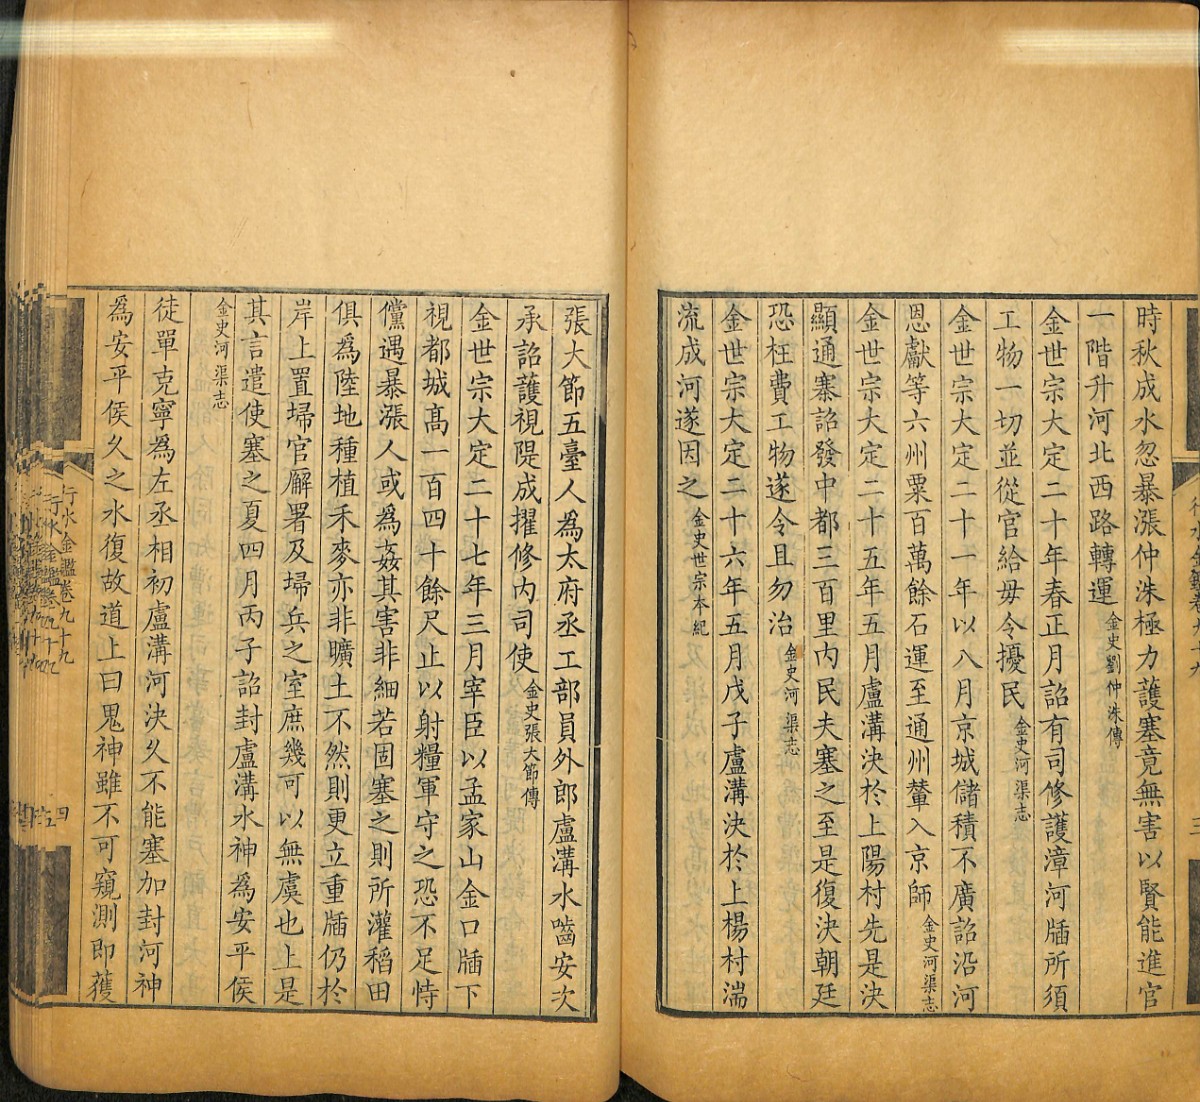 時秋成水忽暴漲仲洙極力護塞竟無害以賢能進官
一階升河北西路轉運金史劉仲洙傳
金世宗大定二十年春正月詔有司修護漳河牐所須
工物一切並從官給毋令擾民金史河渠志
金世宗大定二十一年以八月京城儲積不廣詔沿河
恩獻等六州粟百萬餘石運至通州輦入京師金史河渠志
金世宗大定二十五年五月盧溝決於上陽村先是決
顯通寨詔發中都三百里內民夫塞之至是復決朝廷
恐枉費工物遂令且勿治金史河渠志
金世宗大定二十六年五月戊子盧溝決於上楊村湍
流成河遂因之金史世宗本紀
張大節五臺人為太府丞工部員外郎盧溝水嚙安次
承詔護視隄成擢修內司使金史張大節傳
金世宗大定二十七年三月宰臣以孟家山金口牐下
視都城高一百四十餘尺止以射糧軍守之恐不足恃
儻遇暴漲人或為姦其害非細若固塞之則所灌稻田
俱為陸地種植禾麥亦非曠土不然則更立重牐仍於
岸上置埽官廨署及埽兵之室庶幾可以無虞也上是
其言遣使塞之夏四月丙子詔封盧溝水神為安平侯
金史河渠志
徒單克寧為左丞相初盧溝河決久不能塞加封河神
為安平侯久之水復故道上曰鬼神雖不可窺測即獲
行水金鑑卷九十九
四